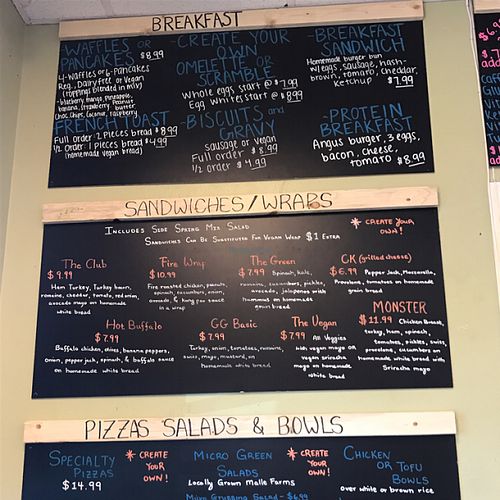 BREAKFAST
WAFFLES or
PANCAKES $8.99
4-Waffles or 6-Pancakes
Reg., Dairy free or Vegan
(toppings blended in mix)
-blueberry, mango, pineapple,
banana, strawberry, Peanut Butter
Choc. Chips, coconut, raspberry
FRENCH TOAST
Full order: 2 pieces bread $8.99
1/2 Order: 1 Piece bread $4.99
(homemade vegan bread)
-CREATE YOUR
OWN
OMELETTE or
SCRAMBLE
Whole eggs start @ $7.99
Egg Whites start @ $8.99
-BISCUITS and
GRAVY
Sausage or Vegan
Full order $8.99
1/2 order $4.99
-BREAKFAST
SANDWICH
Homemade burger bun
w/eggs, sausage, hash-
brown, tomato, cheddar,
ketchup $7.99
-PROTEIN
BREAKFAST
Angus burger, 3 eggs,
bacon, cheese,
tomato $8.99
SANDWICHES/WRAPS
INCLUDES SIDE SPRING MIX SALAD
SANDWICHES CAN BE SUBSTITUTED FOR VEGAN WRAP $1 EXTRA
* CREATE YOUR
OWN!
The Club
$9.99
Ham, Turkey, Turkey bacon,
romaine, cheddar, tomato, red onion,
avocado mayo on homemade
white bread
Fire Wrap
$10.99
Fire roasted chicken, peanuts,
spinach, cucumbers, onion,
avocado, & kung pao sauce
in a wrap
The Green
$7.99 Spinach, kale,
romaine, cucumbers, pickles,
avocado, jalapenos with
hummus on homemade
grain bread
CK (grilled cheese)
$6.99 Pepper Jack, Mozzarella,
Provolone, tomatoes on homemade
grain bread
Hot Buffalo
$7.99
Buffalo chicken, chives, banana peppers,
onion, pepper jack, spinach, & buffalo sauce
on homemade white bread
GG Basic
$7.99
Turkey, onion, tomatoes, romaine,
swiss, mayo, mustard, on
homemade white bread
The Vegan
$7.99 All Veggies
with vegan mayo OR
vegan sriracha
mayo on homemade
white bread
MONSTER
$11.99 Chicken Breast,
turkey, ham, spinach,
tomatoes, pickles, swiss,
provolone, cucumbers on
homemade white bread with
Sriracha mayo
PIZZAS SALADS & BOWLS
SPECIALTY
PIZZAS
$14.99
* CREATE
YOUR
OWN!
MICRO GREEN
SALADS
Locally Grown Malle Farms
* CREATE
YOUR
OWN!
CHICKEN
OR TOFU
BOWLS
over white or brown rice